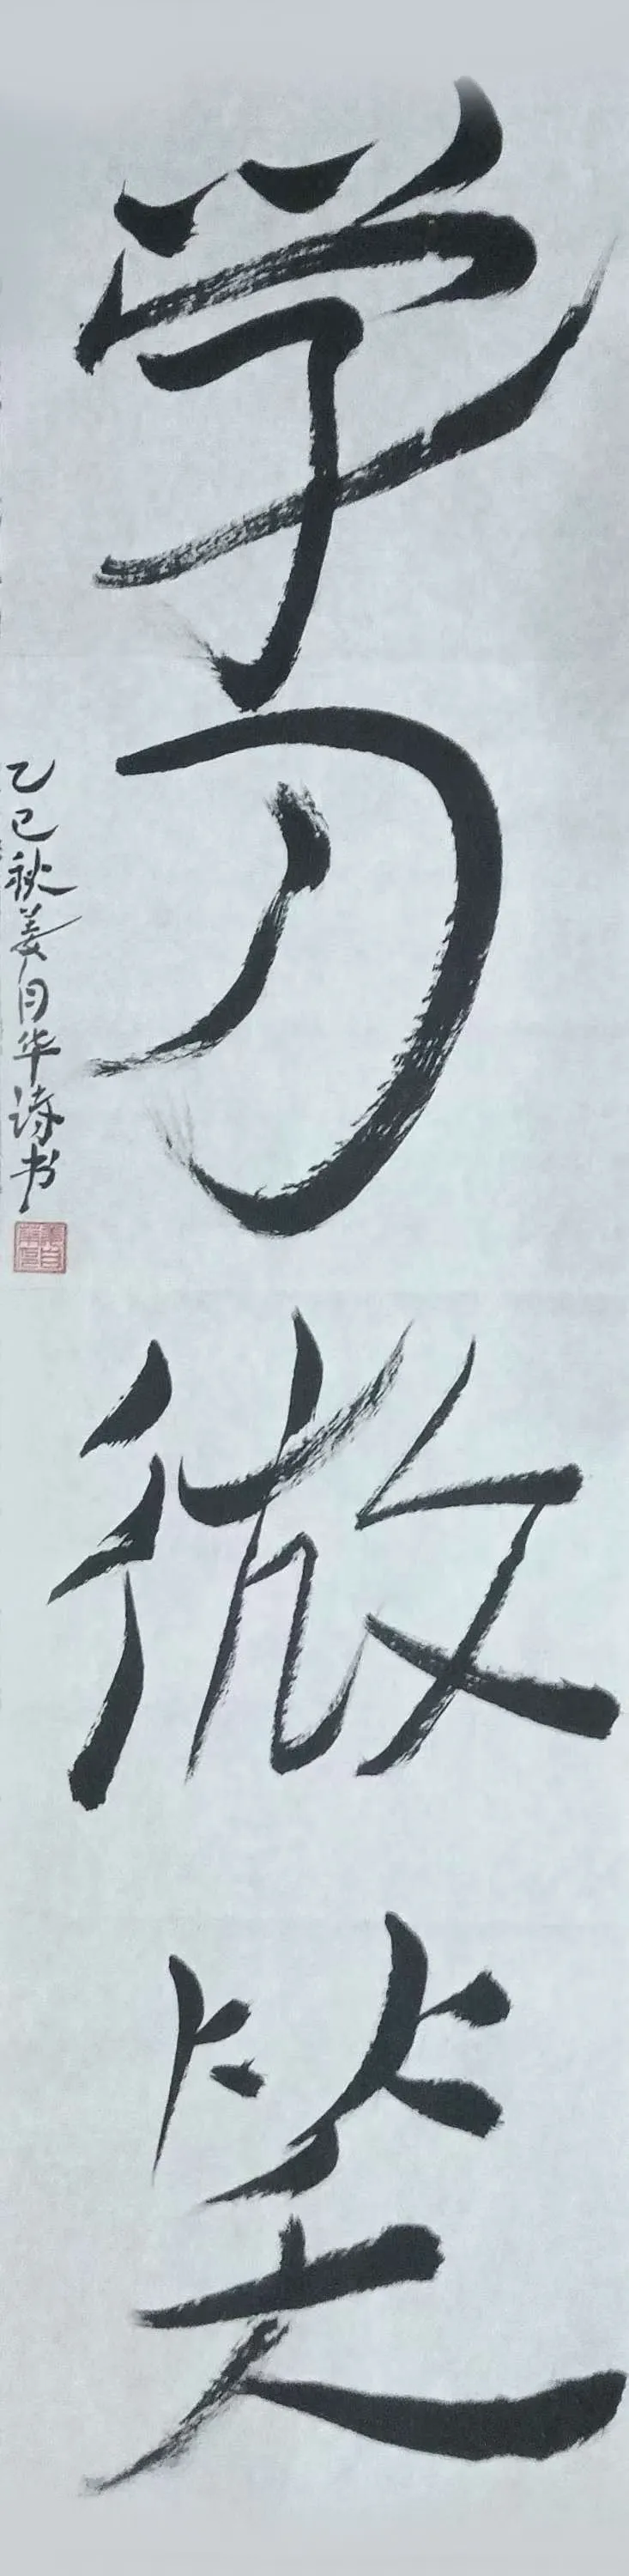 学习微笑
乙巳秋姜自华诗书